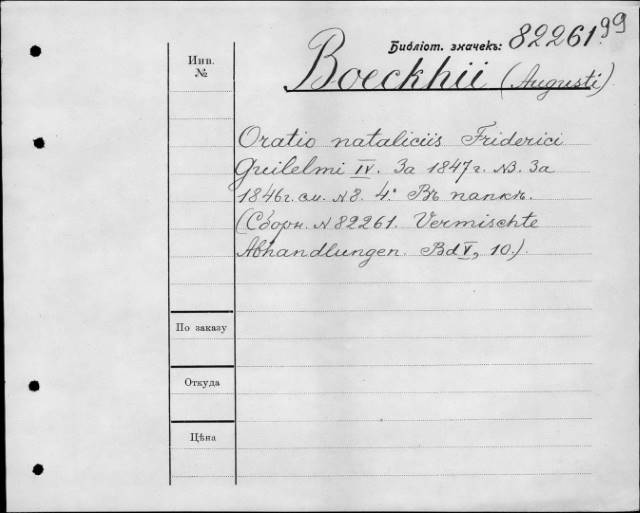 Библіот. значекъ: 82261.99
Инв.
№
Boeckhii (Augusti)
Oratio nataliciis Friderici
Guilelmi IV. За 1847 г. NB. За
1846 г. см. № 8. 4° Въ папкѣ.
(Сборн. № 82261. Vermischte
Abhandlungen. Bd V, 10.)
По заказу
Откуда
Цѣна